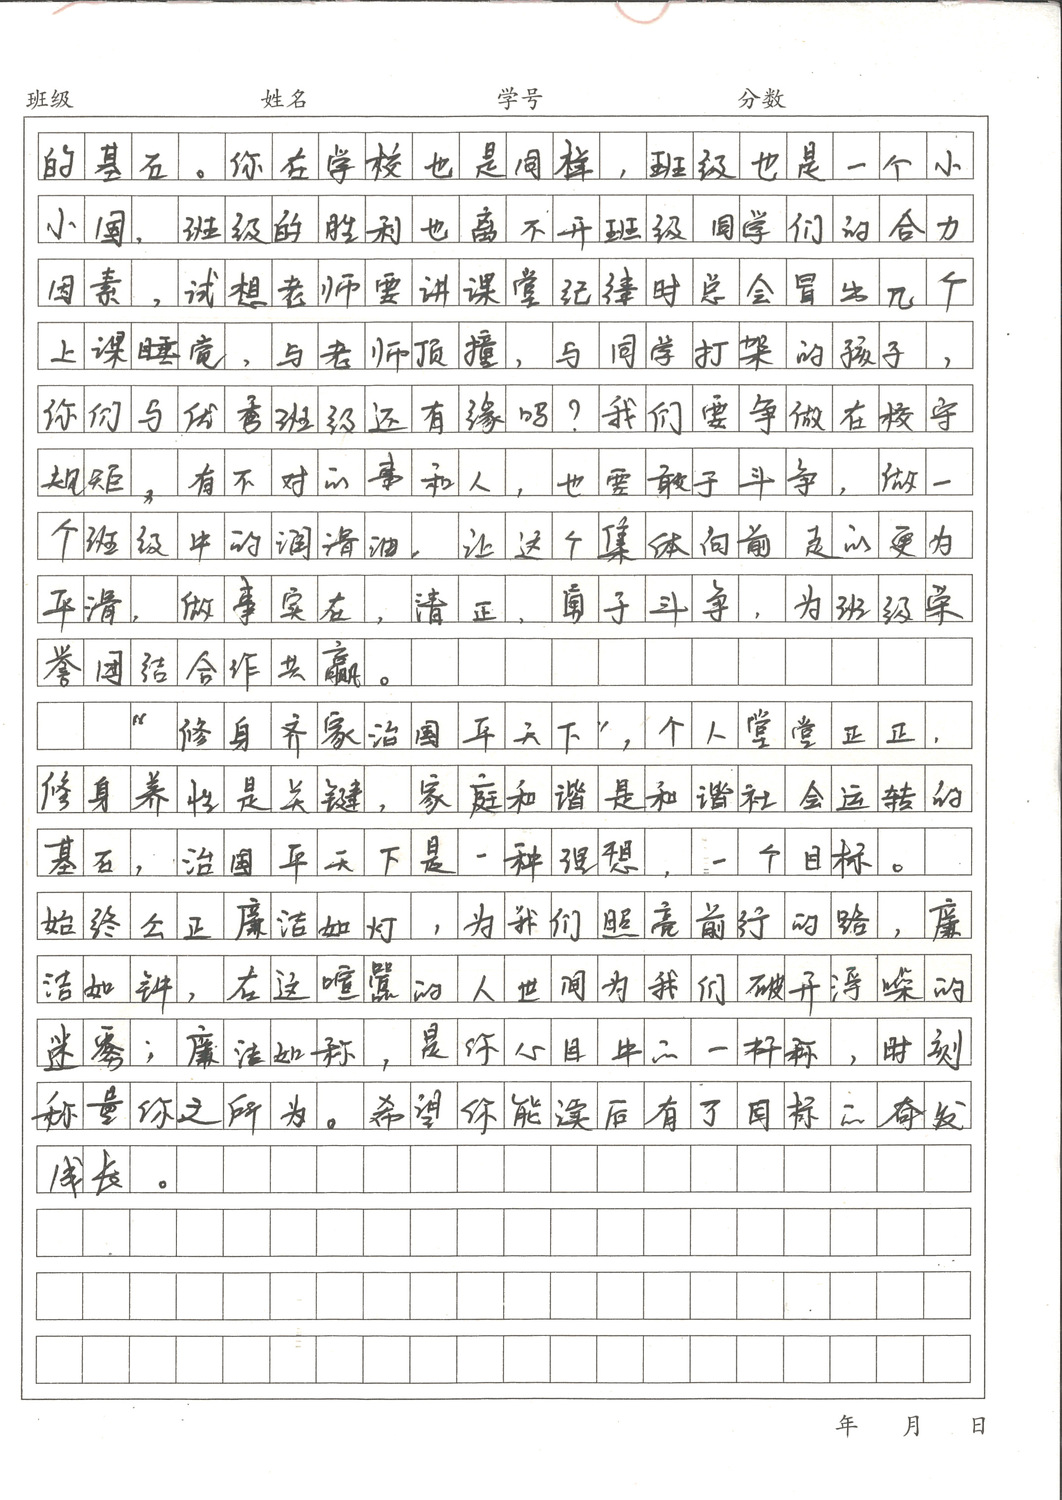 班级 姓名 学号 分数
的基石。你在学校也是同样，班级也是一个小
小国，班级的胜利也离不开班级同学们的合力
因素，试想老师要讲课堂纪律时总会冒出几个
上课睡觉，与老师顶撞，与同学打架的孩子，
你们与优秀班级还有缘吗？我们要争做在校守
规矩，有不对的事和人，也要敢于斗争，做一
个班级中的润滑油，让这个集体向前走的更为
平滑，做事实在，清正，勇于斗争，为班级荣
誉团结合作共赢。
“修身齐家治国平天下”，个人堂堂正正，
修身养性是关键，家庭和谐是和谐社会运转的
基石，治国平天下是一种理想，一个目标。
始终公正廉洁如灯，为我们照亮前行的路，廉
洁如钟，在这喧嚣的人世间为我们破开浮噪的
迷雾；廉洁如称，是你心目中的一杆称，时刻
称量你之所为。希望你能读后有了目标的奋发
成长。
年 月 日